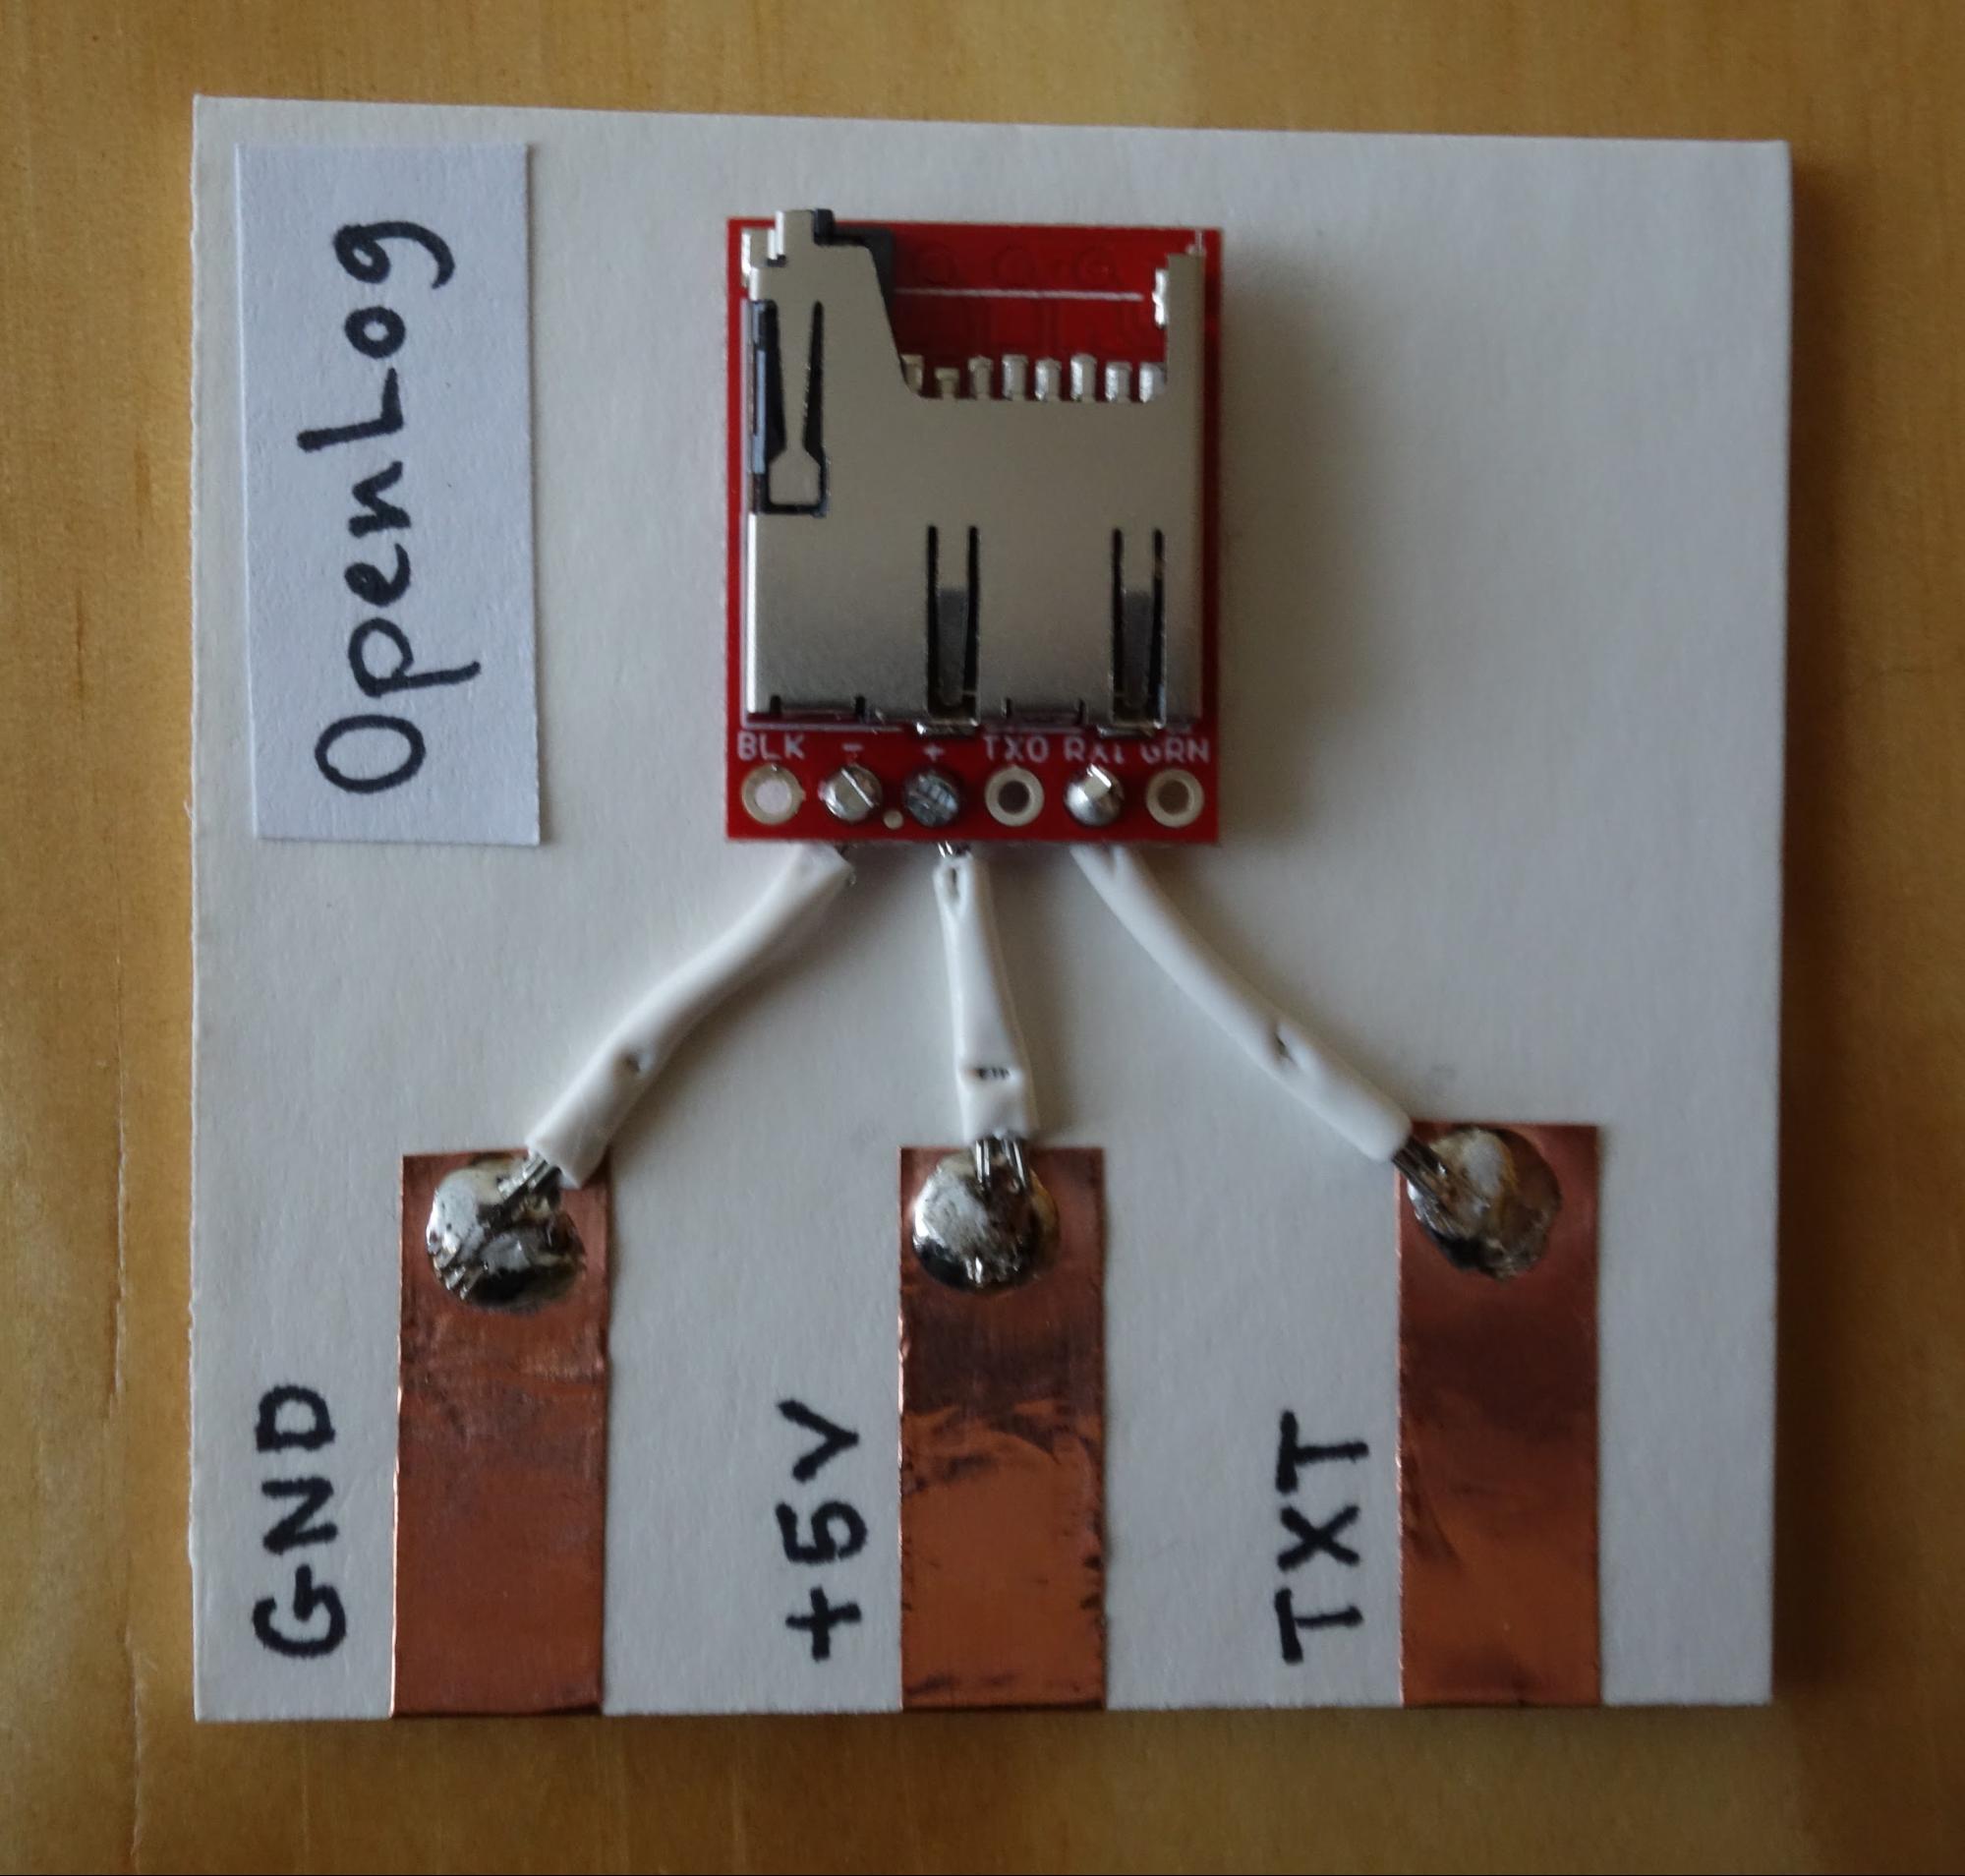 OpenLog
BLK - + TXO RXI GRN
GND
+5V
TXT